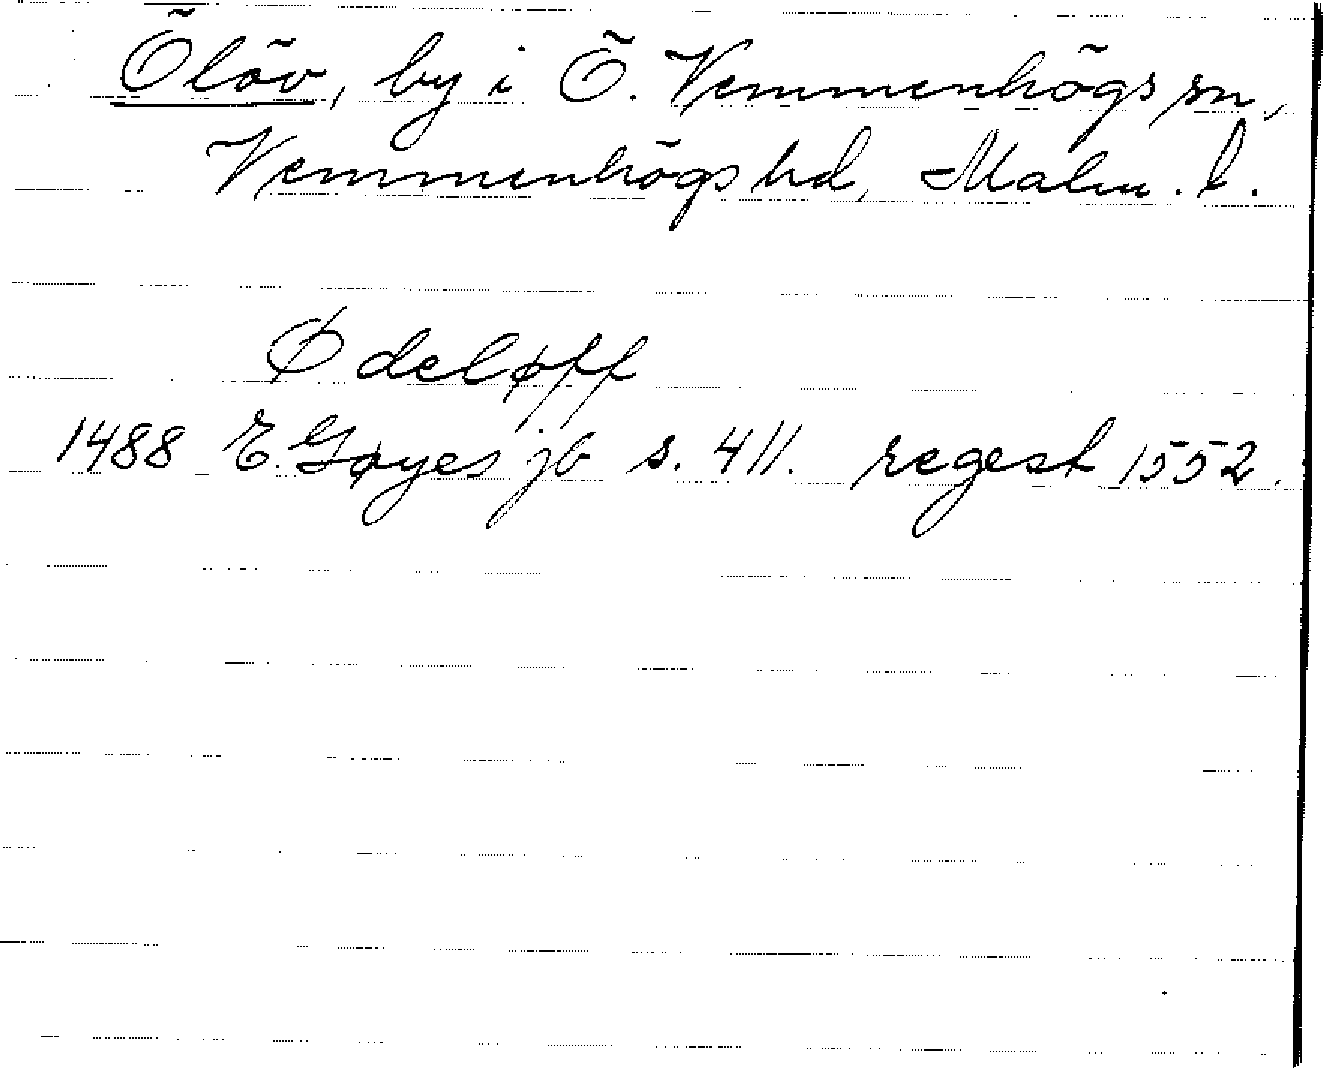 Õlöv, by i Ö. Vemmenhögs sn,
Vemmenhögs hd, Malm. l.
Ødeløff
1488 E. Gøyes jb s. 411. regest 1552.